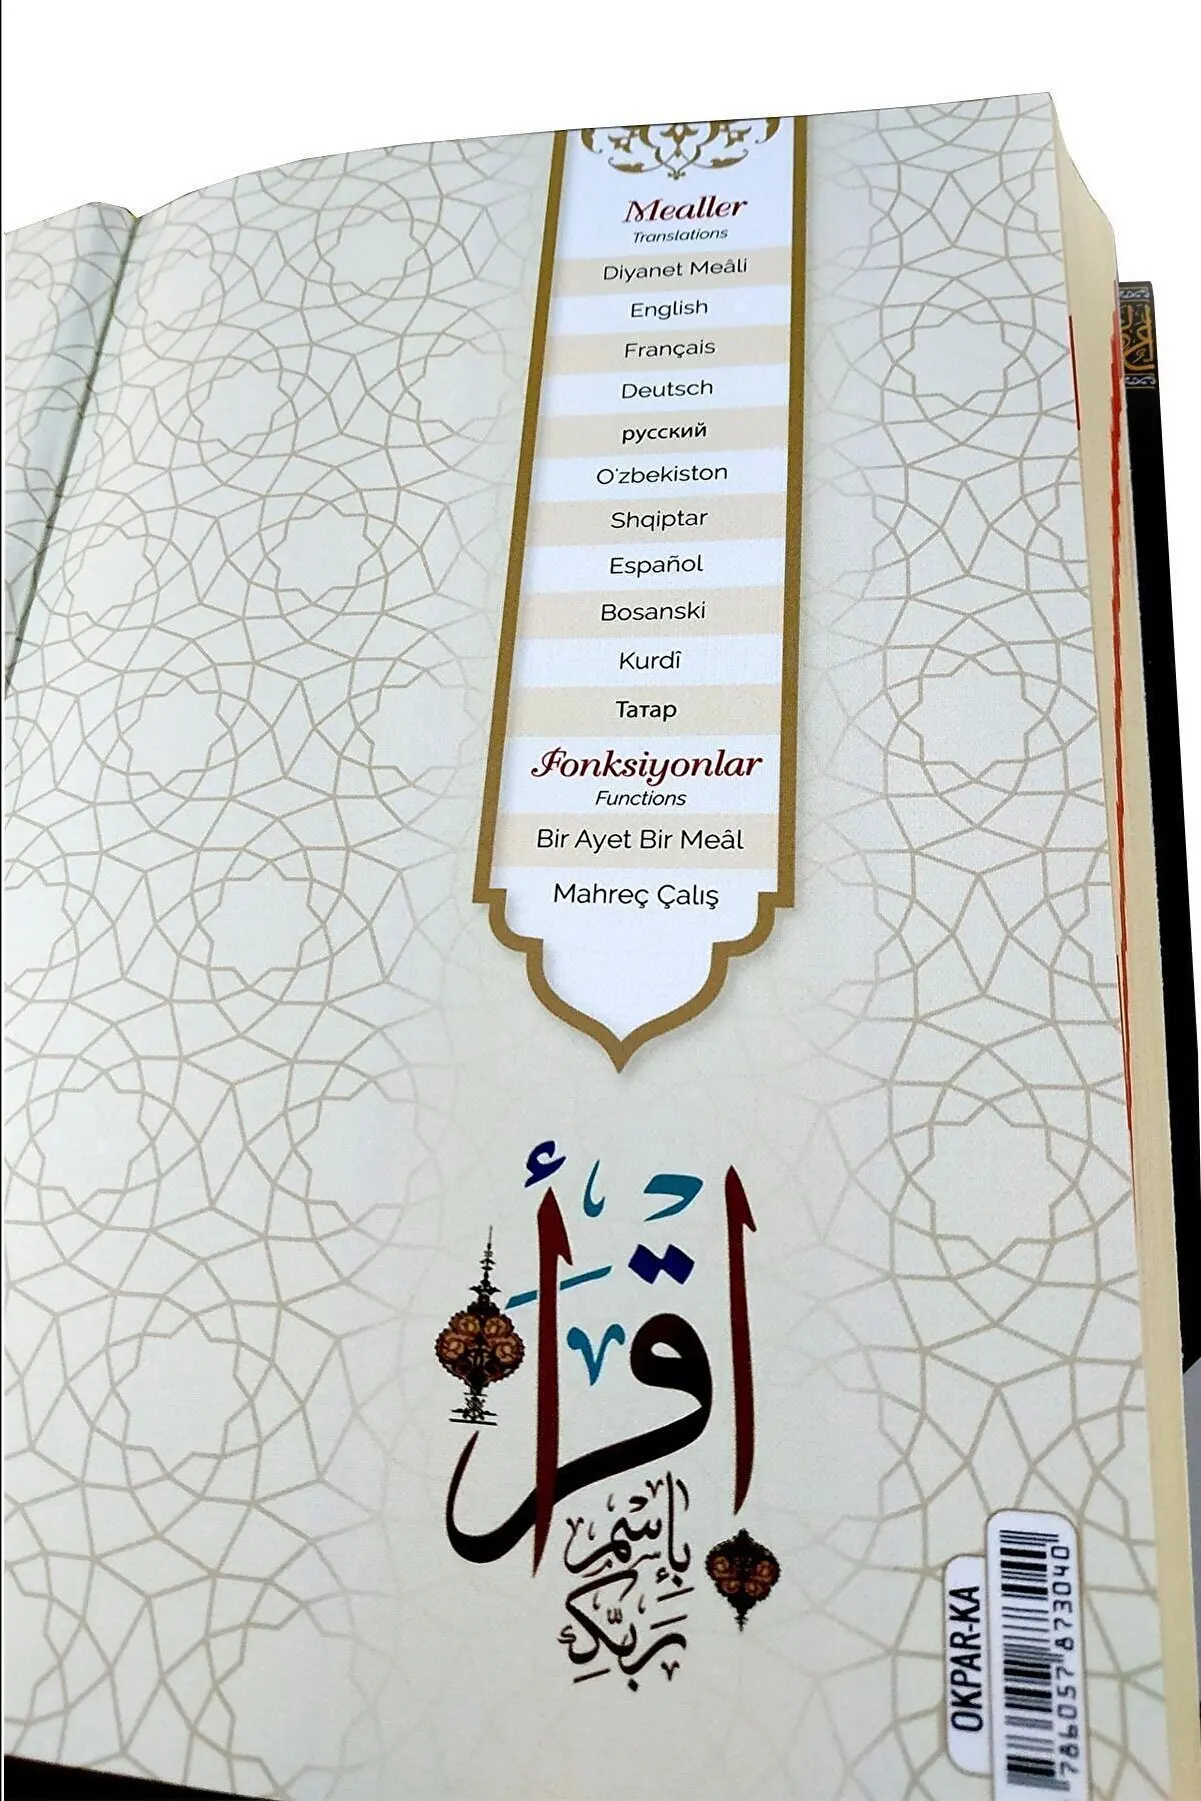 Mealler
Translations
Diyanet Meâli
English
Français
Deutsch
русский
O'zbekiston
Shqiptar
Español
Bosanski
Kurdî
Татар
Fonksiyonlar
Functions
Bir Ayet Bir Meâl
Mahreç Çalış
اِقْرَأْ
بِاِسْمِ
رَبِّكَ
OKPAR-KA
786057 873040